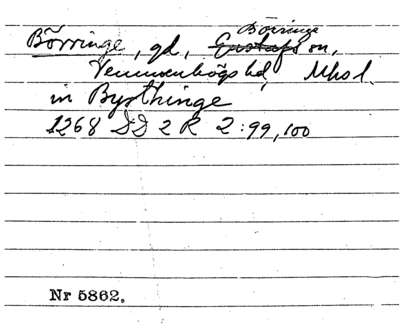 Börringe
Börringe, gd, Gustafs sn,
Vemmenhögs hd, Mhsl.
in Byrthinge
1268 DD 2 R 2:99,100
Nr 5862.